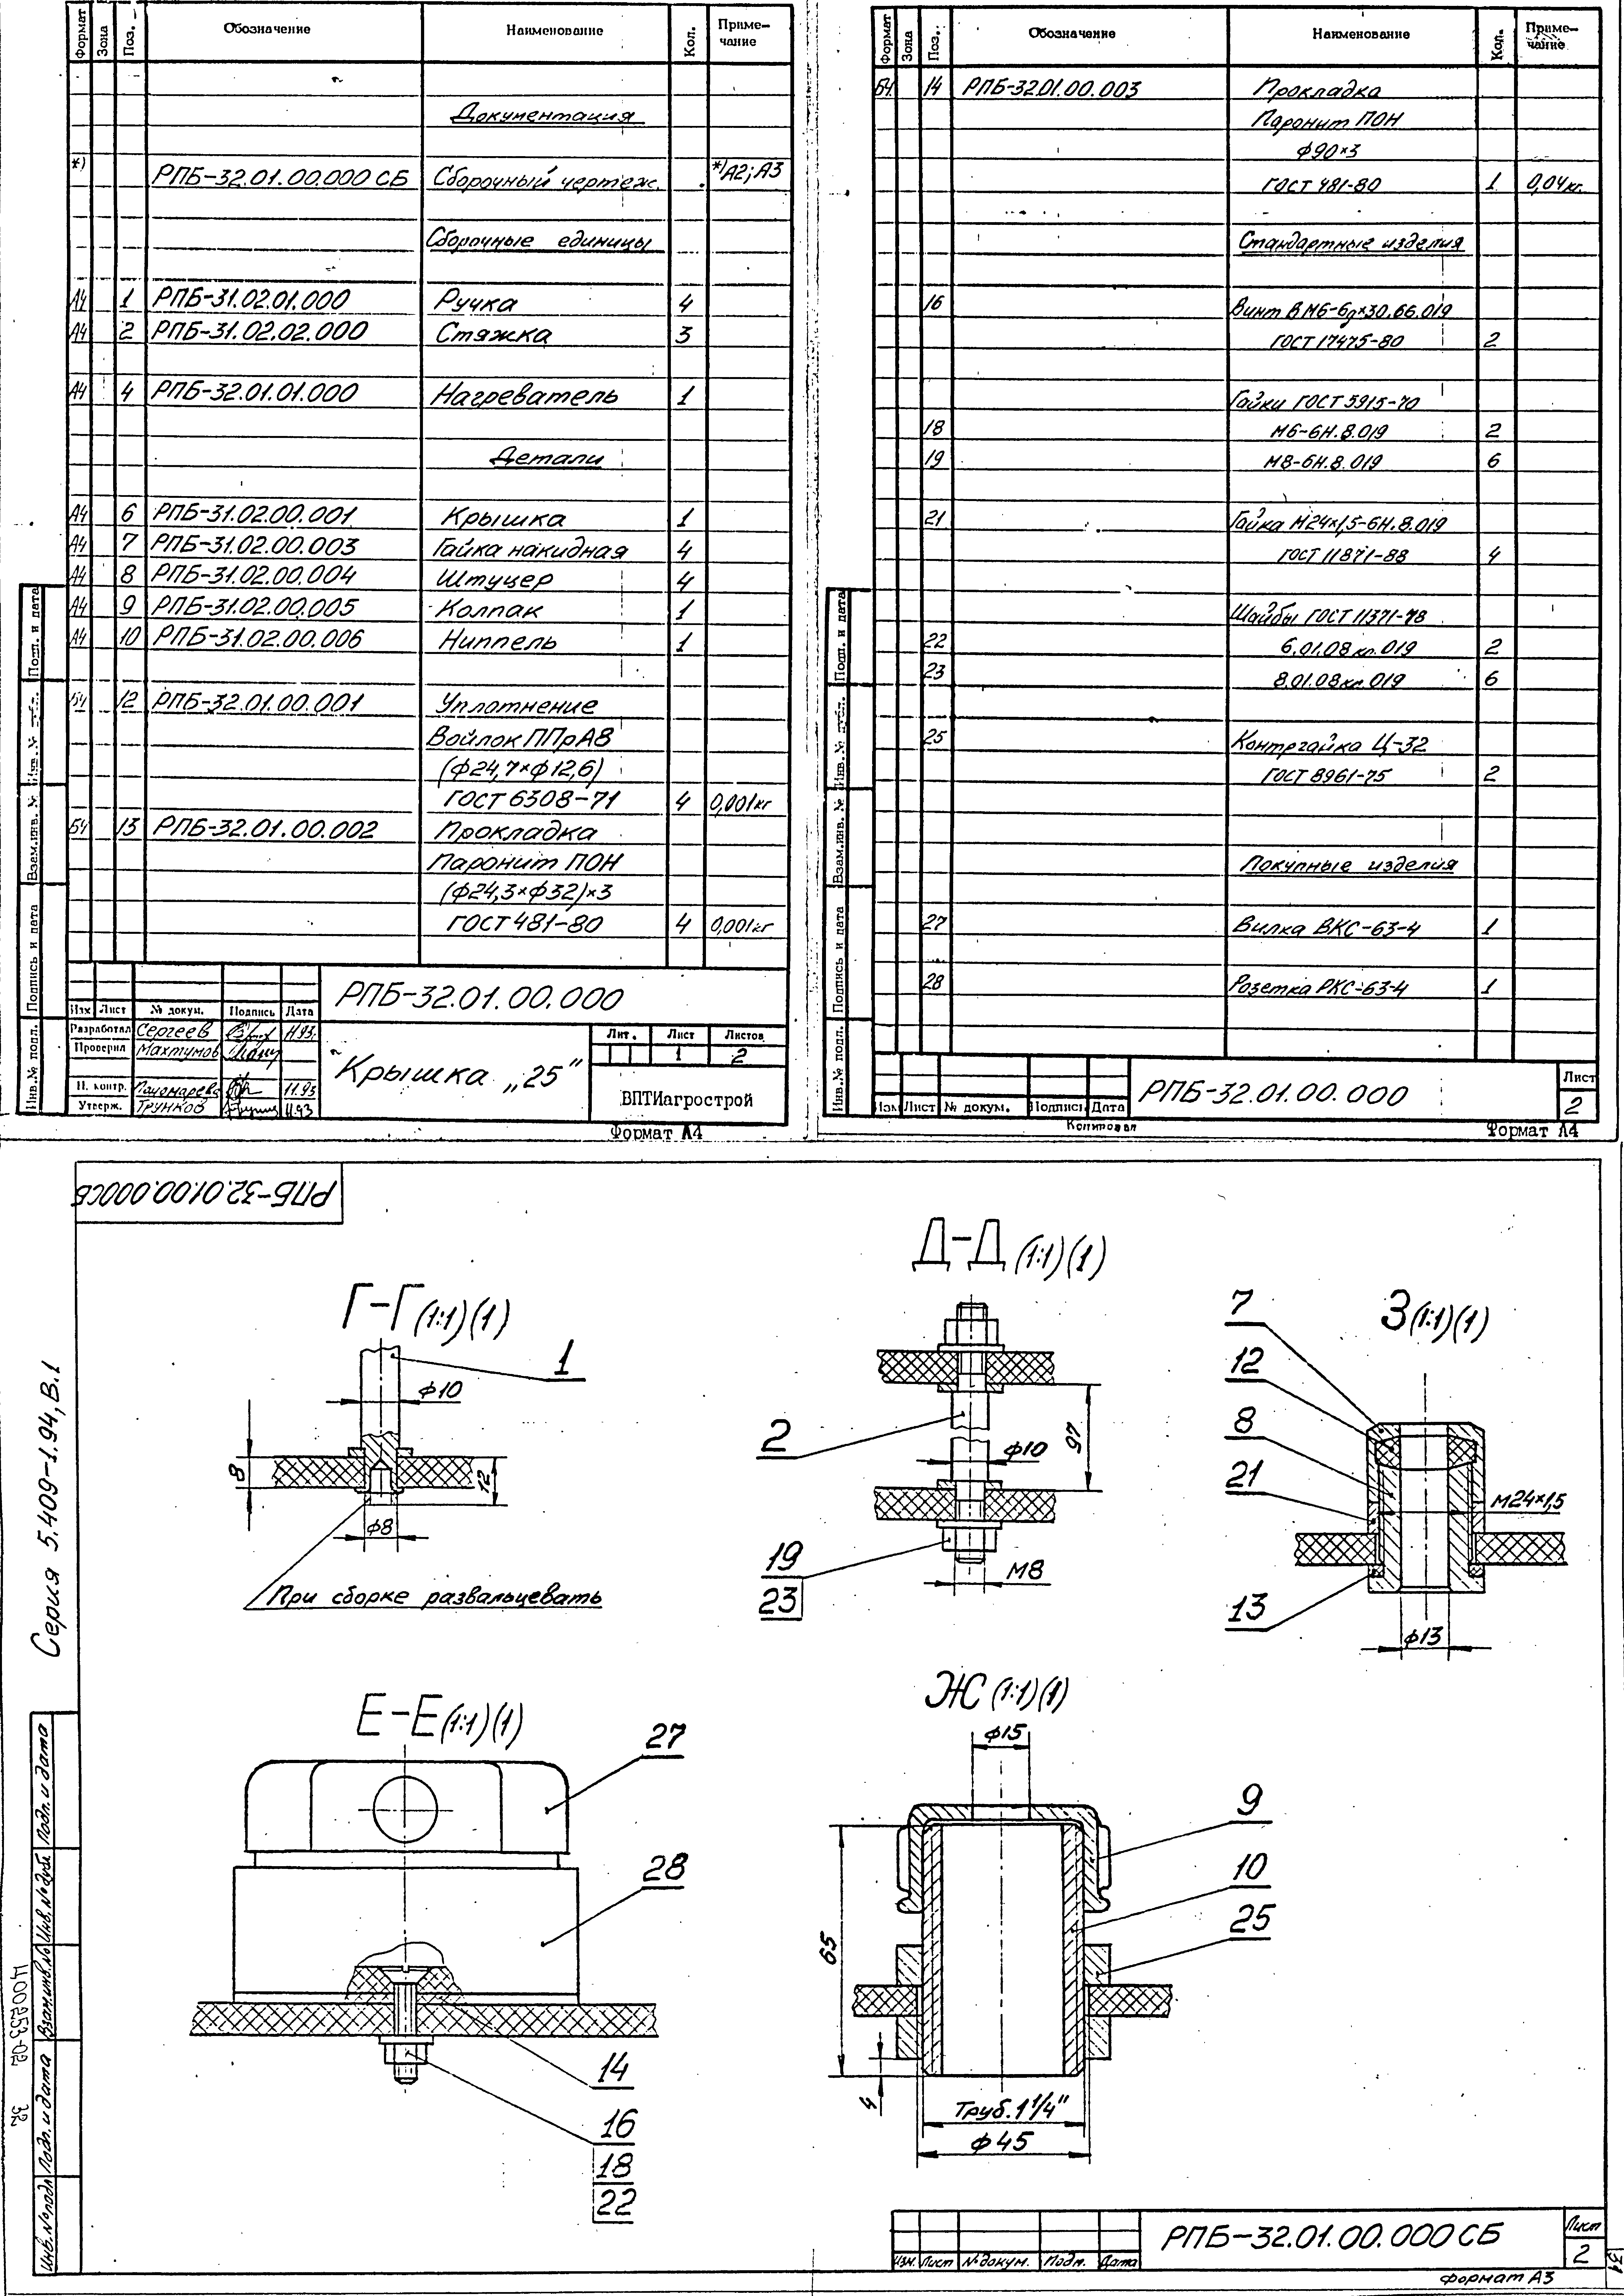 Формат Зона Поз. Обозначение Наименование Кол. Приме-чание
Документация
*) РПБ-32.01.00.000 СБ Сборочный чертеж. *)А2; А3
Сборочные единицы
А4 1 РПБ-31.02.01.000 Ручка 4
А4 2 РПБ-31.02.02.000 Стяжка 3
А4 4 РПБ-32.01.01.000 Нагреватель 1
Детали
А4 6 РПБ-31.02.00.001 Крышка 1
А4 7 РПБ-31.02.00.003 Гайка накидная 4
А4 8 РПБ-31.02.00.004 Штуцер 4
А4 9 РПБ-31.02.00.005 Колпак 1
А4 10 РПБ-31.02.00.006 Ниппель 1
Б4 12 РПБ-32.01.00.001 Уплотнение
Войлок ППрА8
(ф24,7×ф12,6)
ГОСТ 6308-71 4 0,001кг
Б4 13 РПБ-32.01.00.002 Прокладка
Паронит ПОН
(ф24,3×ф32)×3
ГОСТ 481-80 4 0,001кг
РПБ-32.01.00.000
Изм Лист № докум. Подпись Дата
Разработал Сергеев 11.93
Проверил Махтумов
Н. контр. Пономарева 11.93
Утверж. Трунков 11.93
Крышка „25"
Лит. Лист Листов
1 2
ВПТИагрострой
Формат А4
Инв.№ подл. Подпись и дата Взам.инв. № Инв.№ дубл. Подп. и дата
Формат Зона Поз. Обозначение Наименование Кол. Приме-чание
Б4 14 РПБ-32.01.00.003 Прокладка
Паронит ПОН
ф90×3
ГОСТ 481-80 1 0,04кг.
Стандартные изделия
16 Винт В М6-6g×30.66.019
ГОСТ 17475-80 2
Гайки ГОСТ 5915-70
18 М6-6Н.8.019 2
19 М8-6Н.8.019 6
21 Гайка М24×1,5-6Н.8.019
ГОСТ 11871-88 4
Шайбы ГОСТ 11371-78
22 6.01.08кп.019 2
23 8.01.08кп.019 6
25 Контргайка Ц-32
ГОСТ 8961-75 2
Покупные изделия
27 Вилка ВКС-63-4 1
28 Розетка РКС-63-4 1
Изм Лист № докум. Подпись Дата
РПБ-32.01.00.000
Лист
2
Копировал
Формат А4
Инв.№ подл. Подпись и дата Взам.инв. № Инв.№ дубл. Подп. и дата
РПБ-32.01.00.000СБ
Серия 5.409-1.94, В.1
Г-Г (1:1)(1)
1
ф10
8
12
ф8
При сборке развальцевать
Д-Д (1:1)(1)
2
ф10
97
19
23
М8
З (1:1)(1)
7
12
8
21
М24×1,5
13
ф13
Е-Е (1:1)(1)
27
28
14
16
18
22
Ж (1:1)(1)
ф15
9
10
25
65
4
Труб.1 1/4"
ф45
Инв.№подл Подп. и дата Взам.инв.№ Инв.№дубл Подп. и дата
Ц00253-02 32
Изм. Лист №докум. Подп. Дата
РПБ-32.01.00.000СБ
Лист
2
формат А3
31